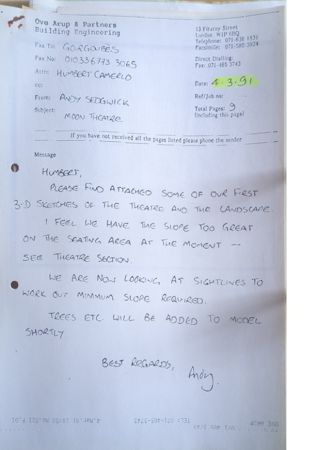 Ove Arup & Partners
Building Engineering
13 Fitzroy Street
London W1P 6BQ
Telephone: 071-636 1531
Facsimile: 071-580 3924
Fax To: GORGOUBES
Fax No: 010336773 3065
Direct Dialling:
Fax: 071-465 3743
Attn: HUMBERT CAMERLO
cc:
Date: 4.3.91
From: ANDY SEDGWICK
Ref/Job no:
Subject: MOON THEATRE
Total Pages: 9
(including this page)
If you have not received all the pages listed please phone the sender
Message
HUMBERT,
PLEASE FIND ATTACHED SOME OF OUR FIRST
3-D SKETCHES OF THE THEATRE AND THE LANDSCAPE.
I FEEL WE HAVE THE SLOPE TOO GREAT
ON THE SEATING AREA AT THE MOMENT —
SEE THEATRE SECTION.
WE ARE NOW LOOKING AT SIGHTLINES TO
WORK OUT MINIMUM SLOPE REQUIRED.
TREES ETC WILL BE ADDED TO MODEL
SHORTLY
BEST REGARDS,
Andy.